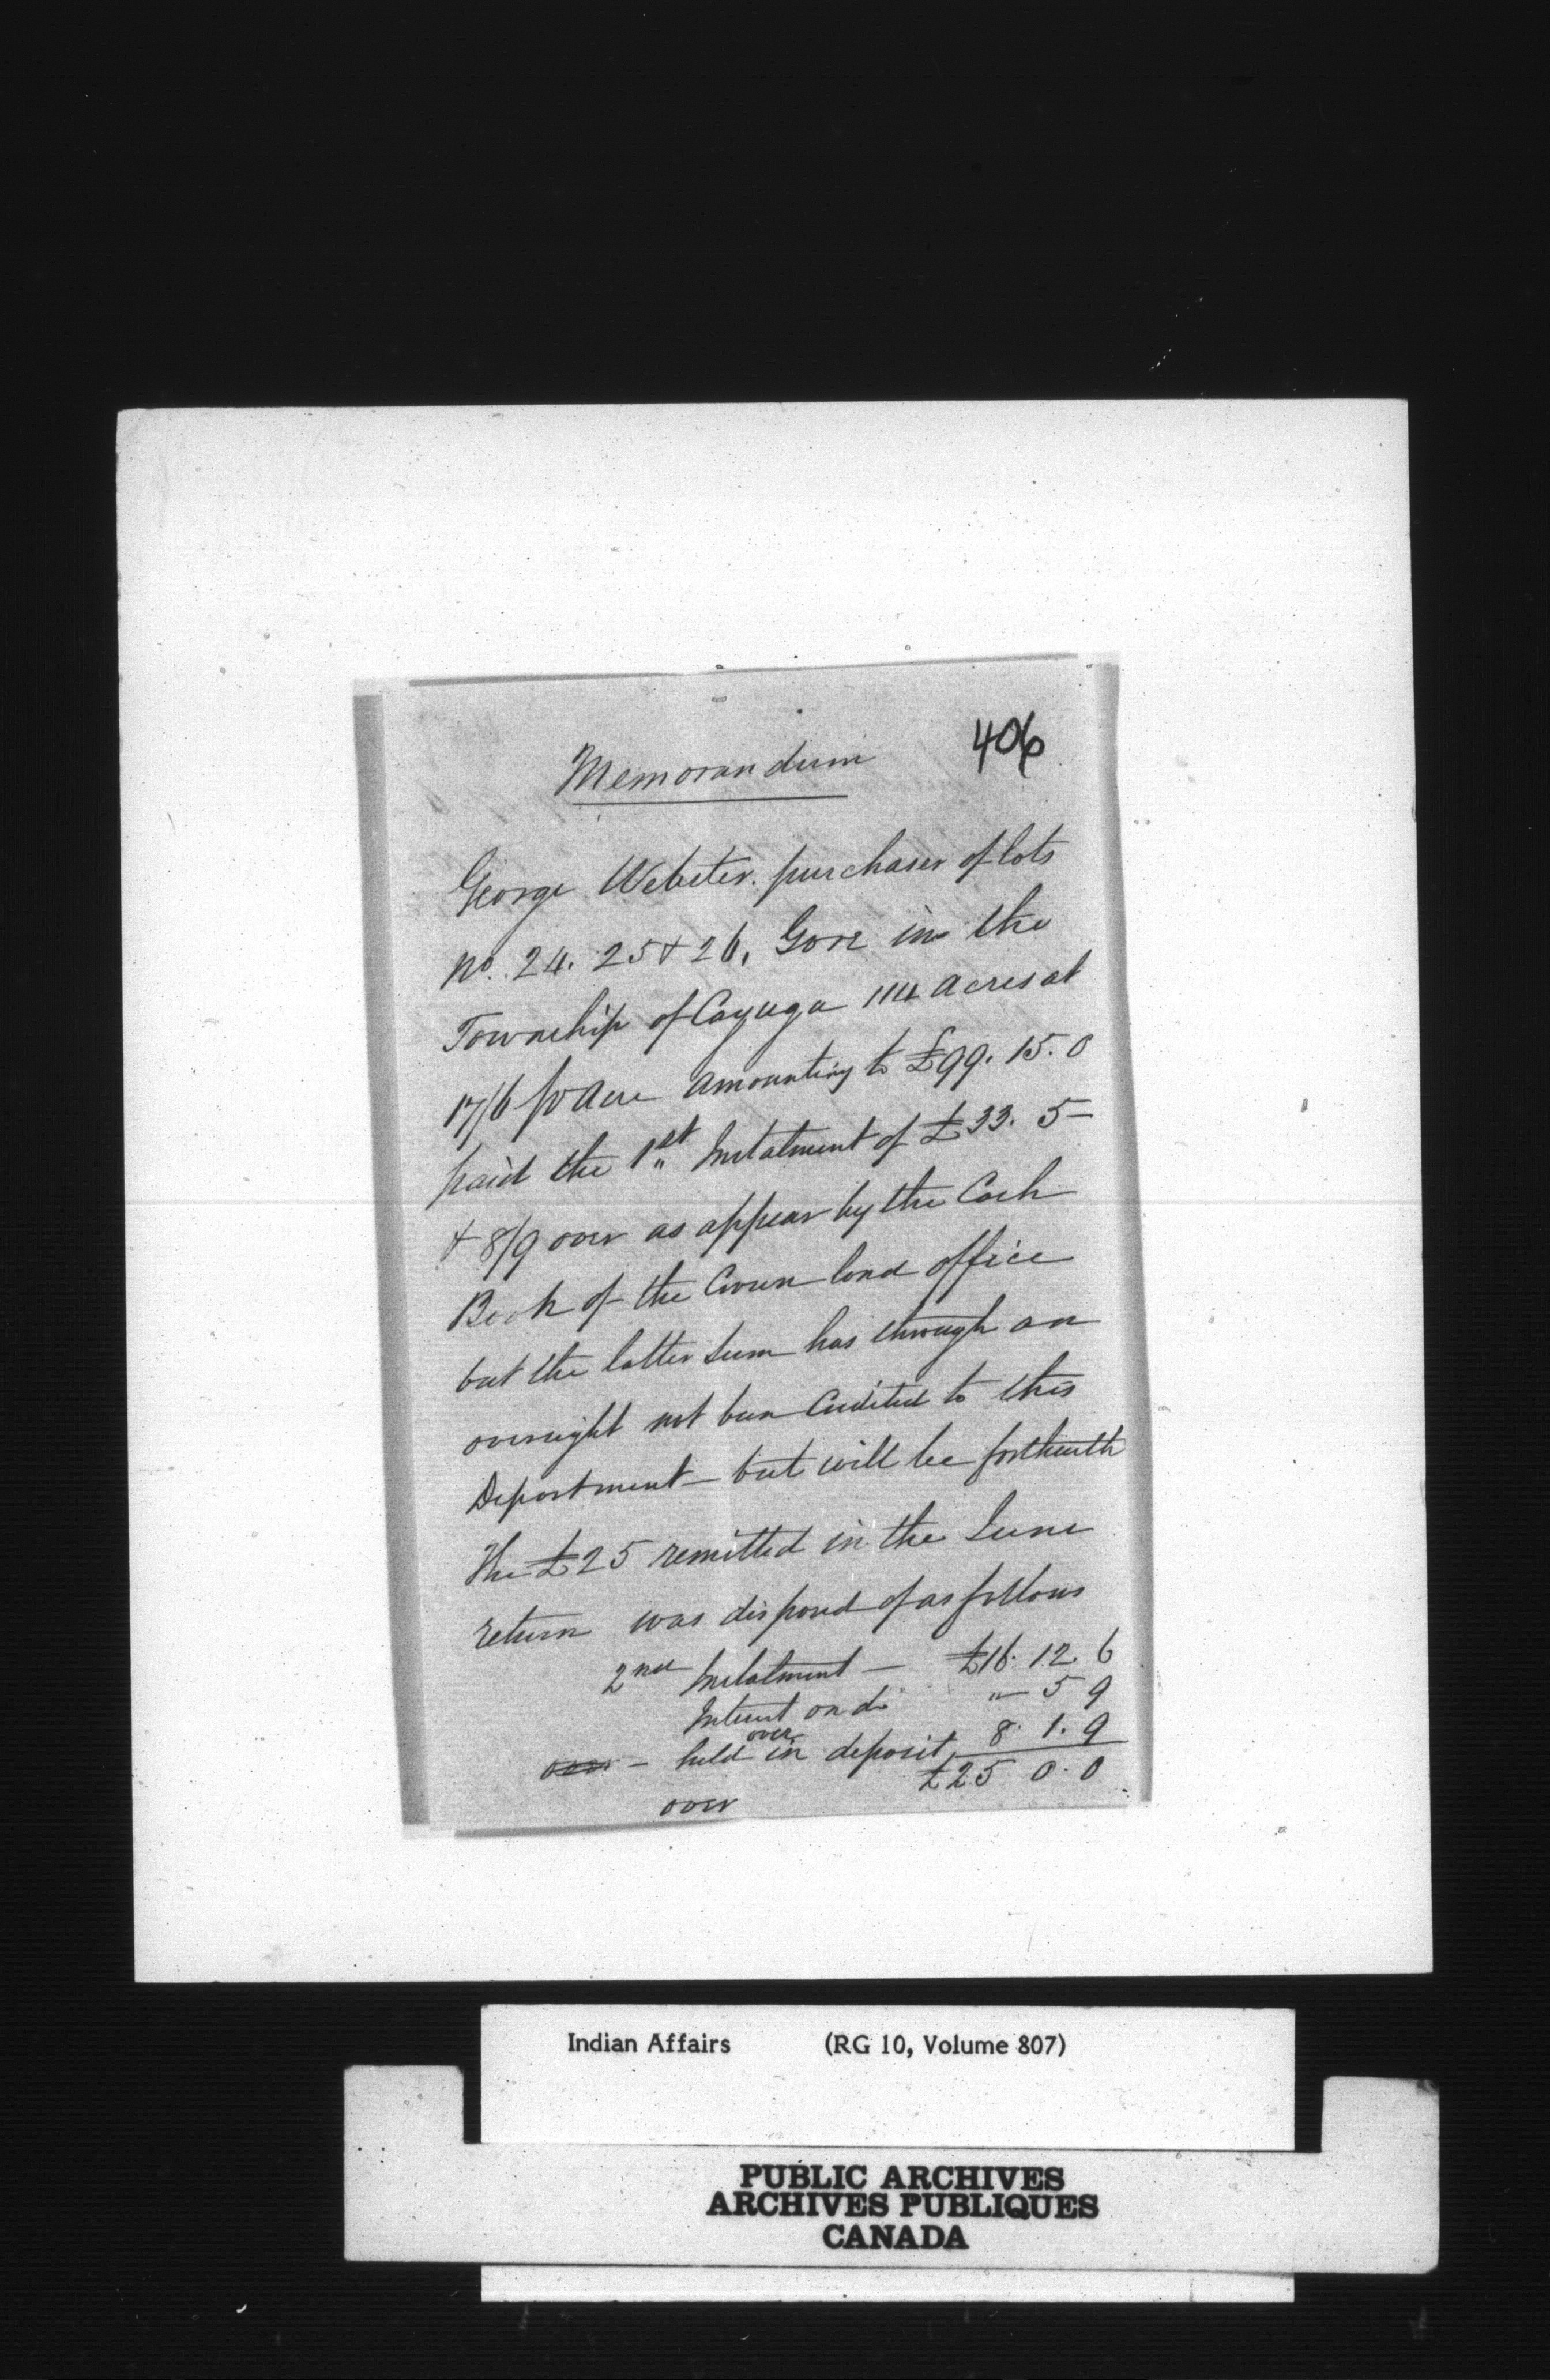 406
Memorandum
George Webster. purchaser of lots
No. 24. 25 & 26, Gore in the
Township of Cayuga 114 Acres at
17/6 pr Acre Amounting to £99. 15. 0
paid the 1st Instalment of £33. 5 -
& 8/9 over as appear by the Cash
Book of the Crown land office
but the latter sum has through an
oversight not been Credited to this
Department - but will be forthwith
The £25 remitted in the June
return was disposed of as follows
2nd Instalment — £16. 12. 6
Interest on do " - 5 9
over
over - held in deposit 8. 1. 9
£25 0. 0
over
Indian Affairs (RG 10, Volume 807)
PUBLIC ARCHIVES
ARCHIVES PUBLIQUES
CANADA